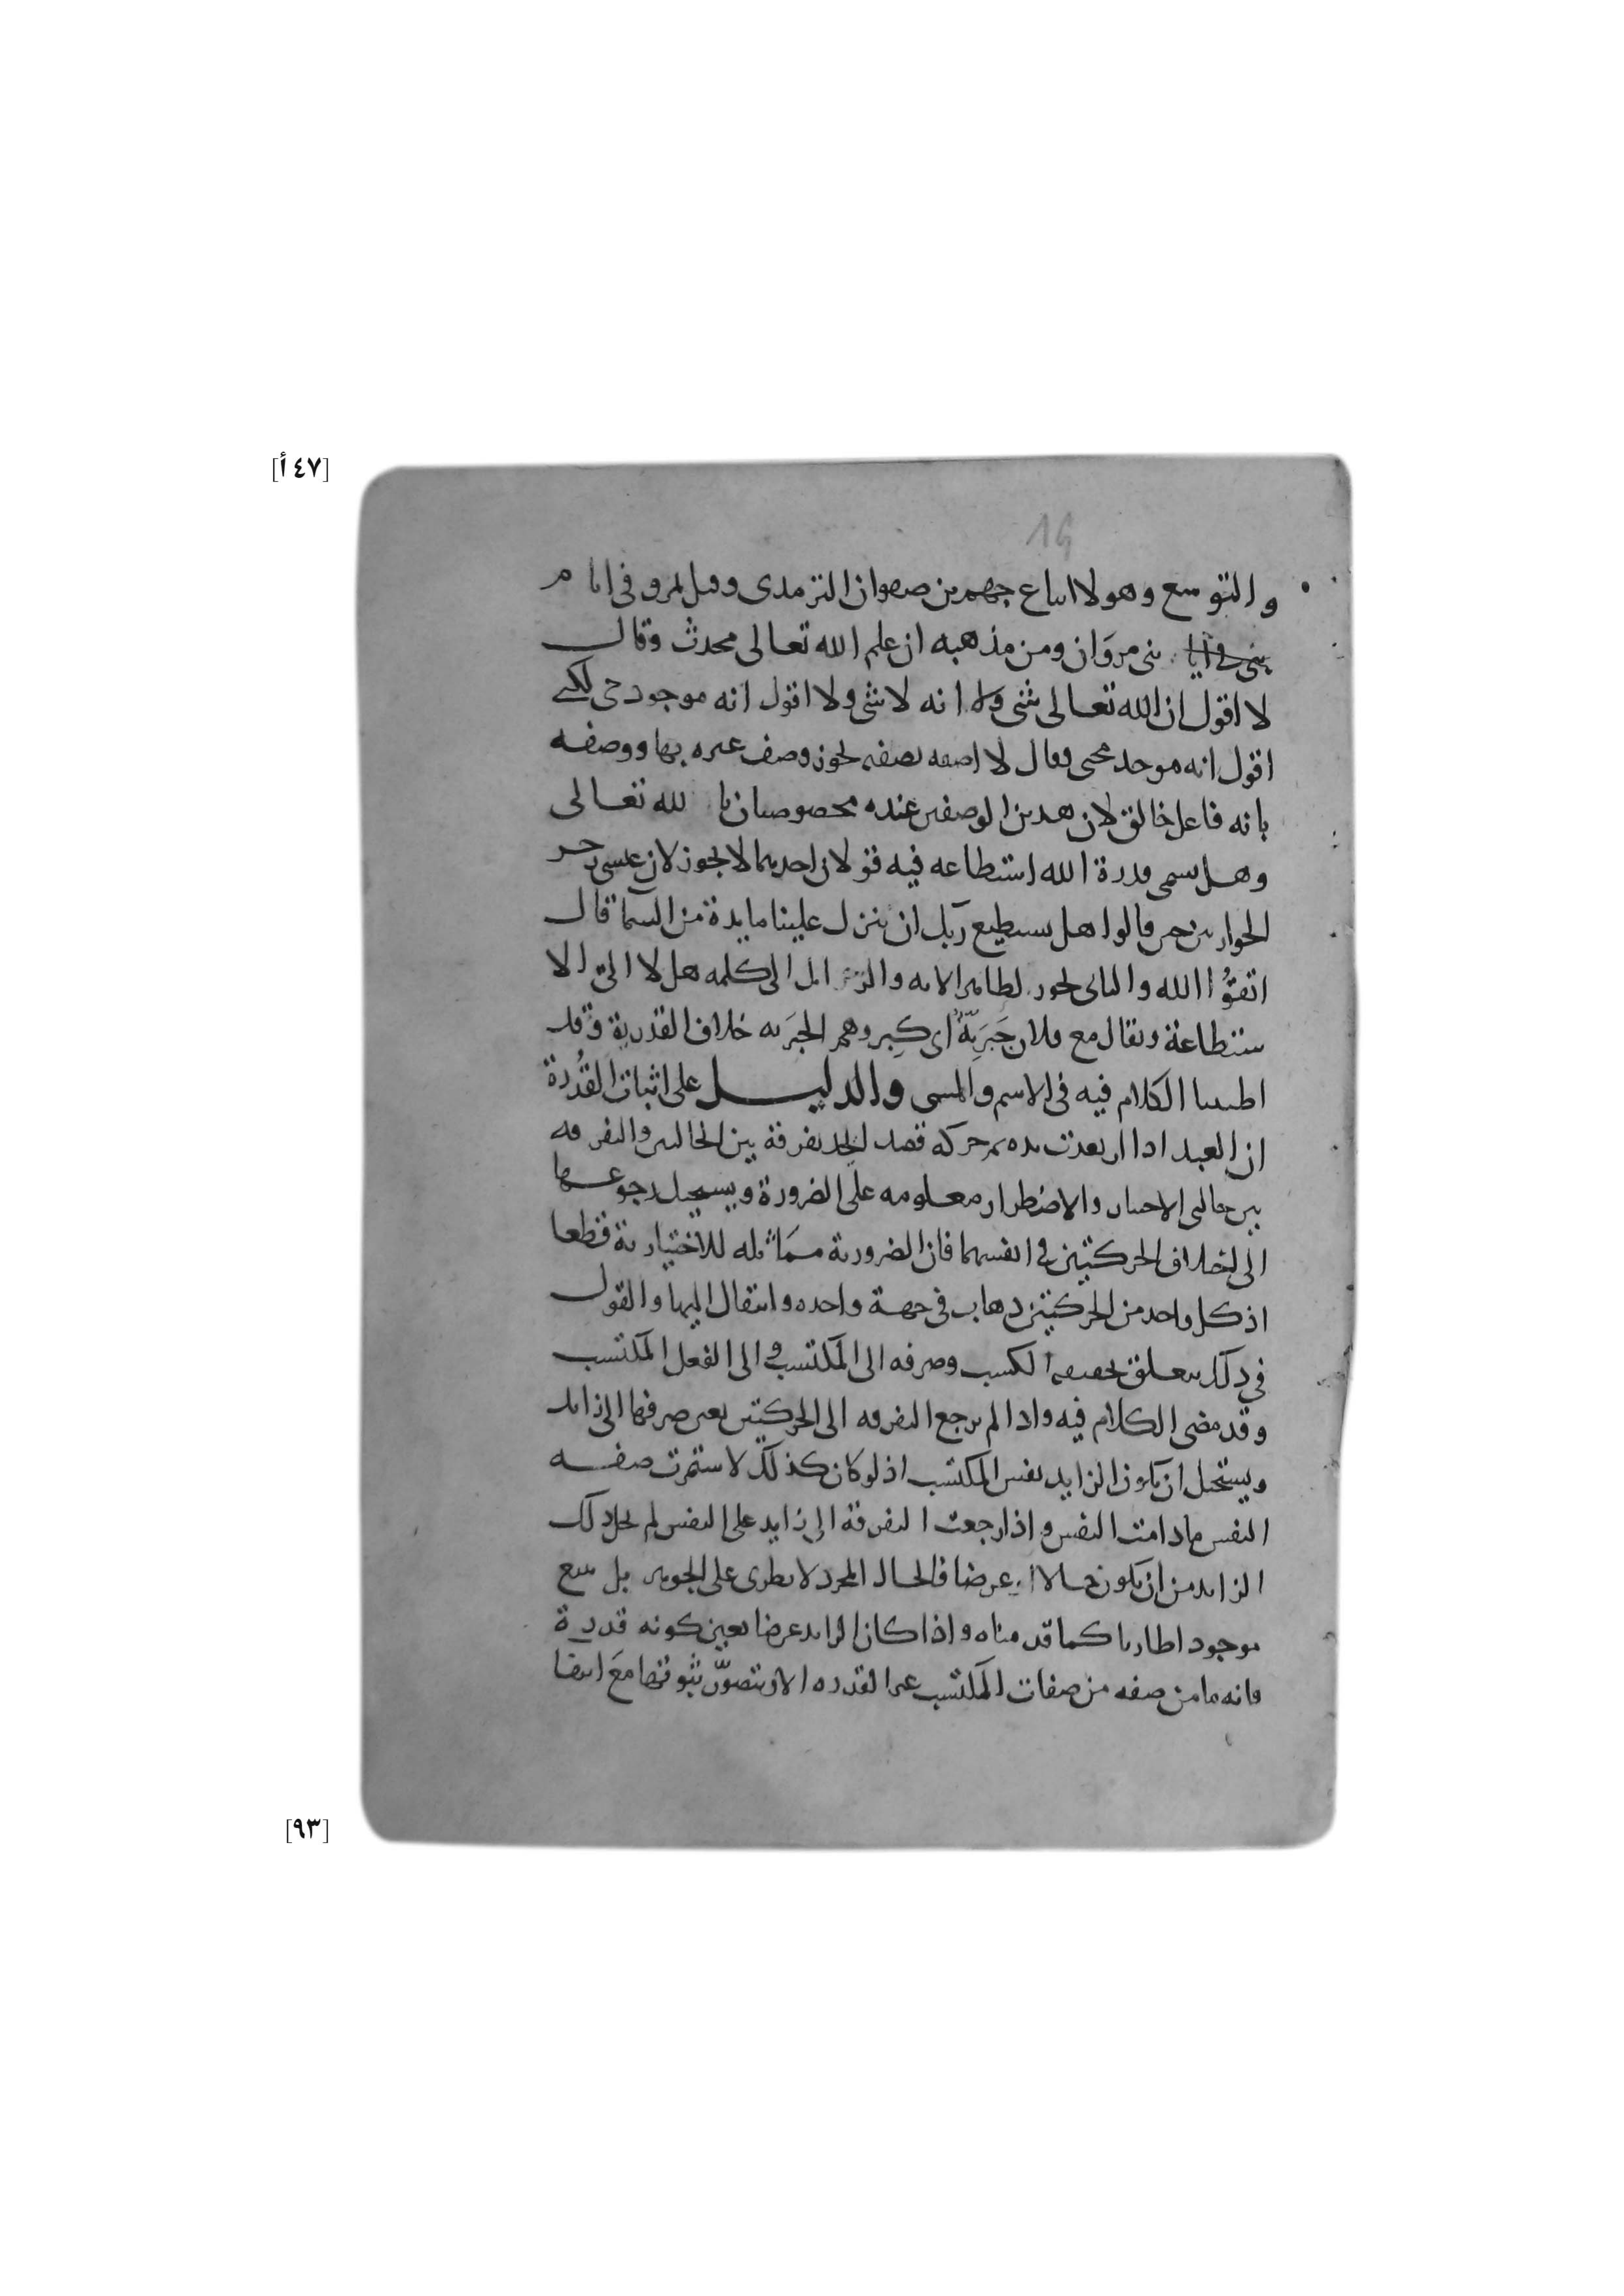 [٤٧ أ]
19
والتوسع وهولا اتباع جهم بن صفوان الترمذى وقتل بمرو فى ايام
بنى مروان ومن مذهبه ان علم الله تعالى محدث وقال
لا اقول ان الله تعالى شى ولا انه لا شى ولا اقول انه موجود حى لكنى
اقول انه موجد محيى وقال لا اصفه بصفه يجوز وصف غيره بها ووصفه
بانه فاعل خالق لان هذين الوصفين عنده مخصوصان بالله تعالى
وهل يسمى قدرة الله استطاعه فيه قولان احديهما لا يجوز لان عيسى زجر
الحواريين حين قالوا هل يستطيع ربك ان ينزل علينا مايدة من السما قال
اتقوا الله والثانى يجوز لظاهر الايه والزجر الى كلمه هل لا الى الا
ستطاعة ويقال مع فلان جبرية اى كبر وهم الجبريه خلاف القدرية وقد
اطنبنا الكلام فيه فى الاسم والمسمى والدليل على اثبات القدرة
ان العبد اذا ارتعدت يده ثم حركه قصد ايجد تفرقة بين الحالتين والتفرقه
بين حالتى الاختيار والاضطرار معلومه على الضرورة ويستحيل رجوعها
الى اختلاف الحركتين فى انفسهما فان الضرورية مماثله للاختيارية قطعا
اذ كل واحد من الحركتين ذهاب فى جهة واحده وانتقال اليها والقول
فى ذلك يتعلق بحقيقه الكسب وصرفه الى المكتسب والى الفعل المكتسب
وقد مضى الكلام فيه واذا لم يرجع التفرقه الى الحركتين تعين صرفها الى زايد
ويستحيل ان يكون الزايد نفس المكتسب اذ لو كان كذلك لاستمرت صفه
النفس ما دامت النفس واذا رجعت التفرقة الى زايد على النفس لم يخل ذلك
الزايد من ان يكون حالا او عرضا فالحال المجرد لا يطرى على الجوهر بل يتبع
موجودا طاريا كما قدمناه واذا كان الزايد عرضا تعين كونه قدرة
فانه ما من صفه من صفات المكتسب غير القدره الا ويتصور ثبوتها مع انتفا
[٩٣]